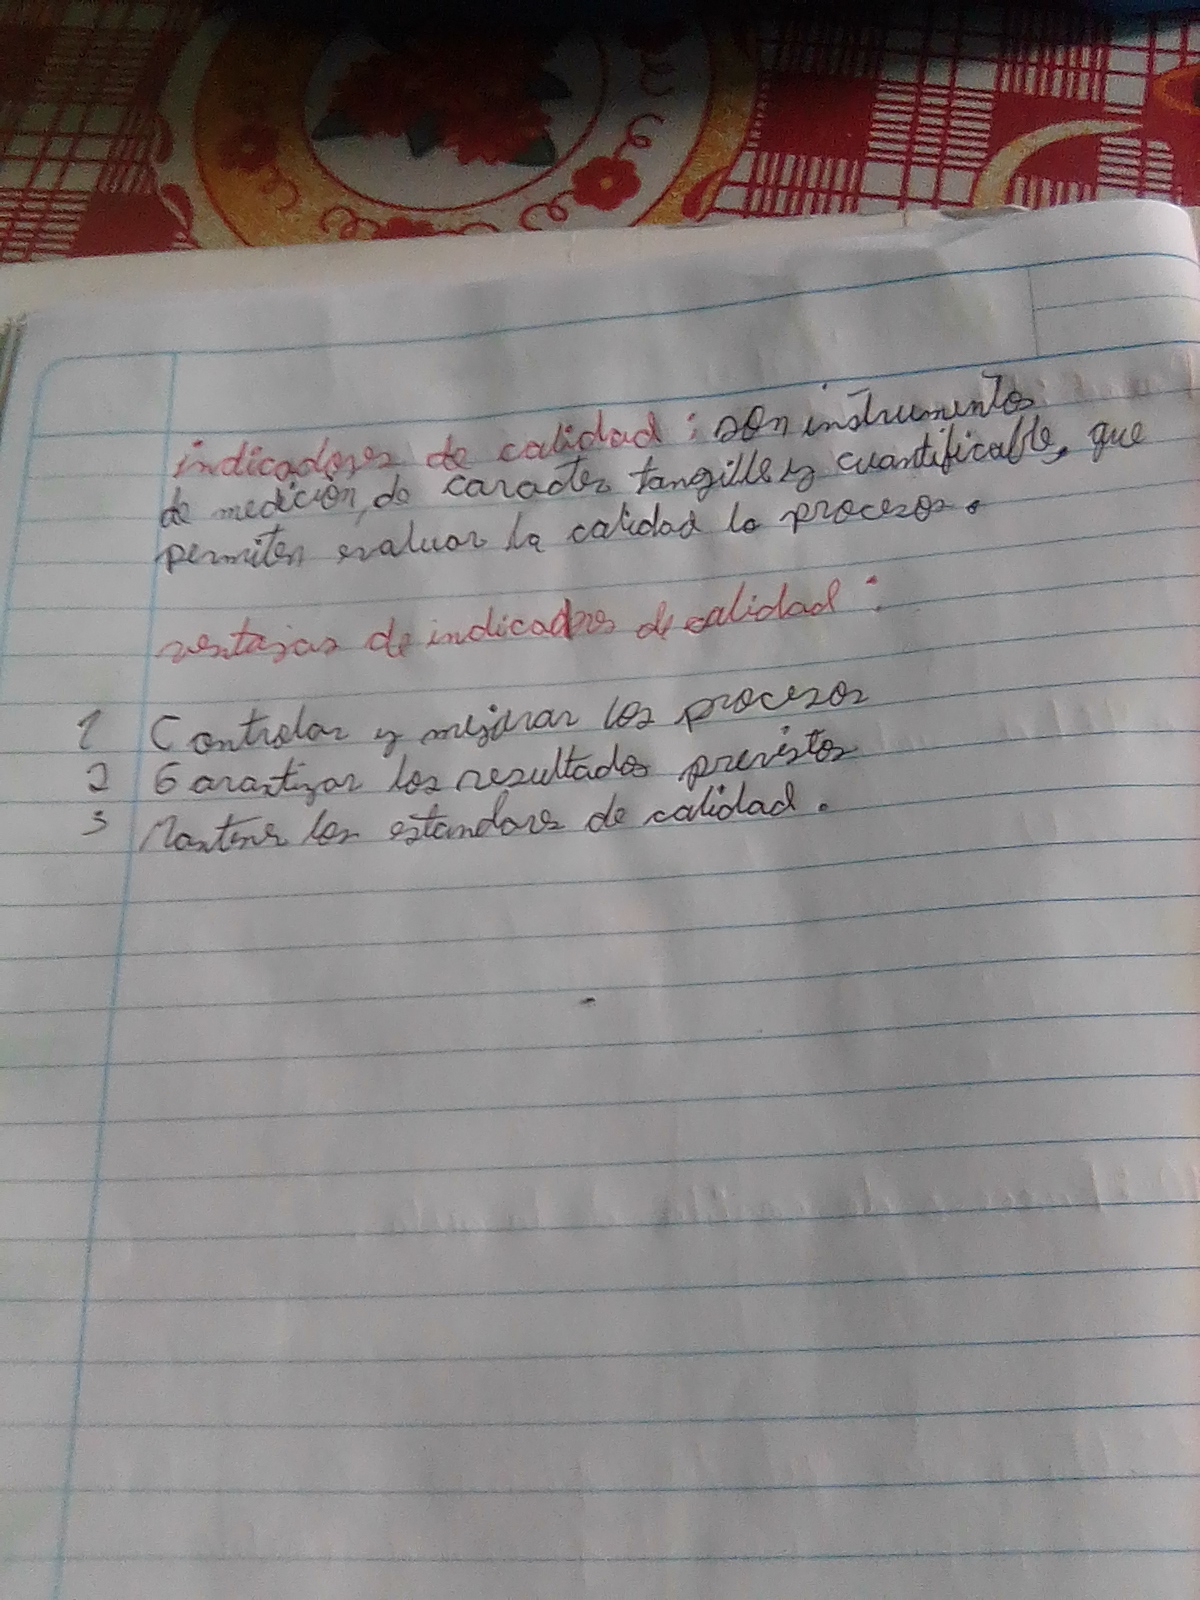 indicadores de calidad : son instrumentos
de medición, de caracter tangille y cuantificable, que
permiten evaluar la calidad lo procesos.
ventajas de indicadores de calidad :
1 Controlar y mejorar los procesos
2 Garantizar los resultados previstos
3 Mantener los estandares de calidad.